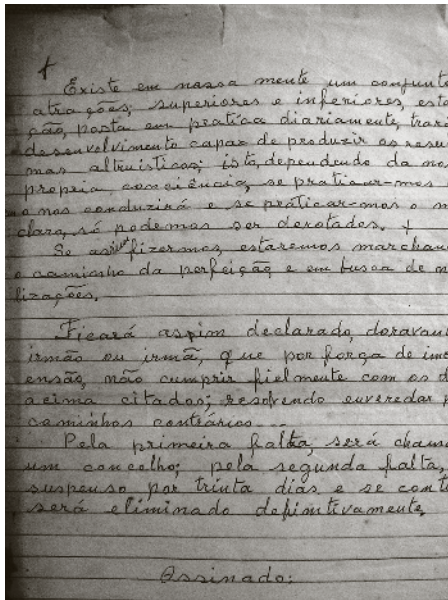 Existe em nossa mente um conjunt
atrações, superiores e inferiores, est
ção, posta em pratica diariamente, tra
desenvolvimento capaz de produzir os resu
mas altruisticas; isto, dependendo da no
propria conciência, se praticar-mos
o nos conduzirá e se práticar-mos o m
clara, só podemos ser derotados. +
Se assim fizermos, estaremos marchan
o caminho da perfeição e em busca de m
lizações.
Ficará assim declarado, doravan
irmão ou irmã, que por força de inc
ensão, não cumprir fielmente com os d
acima citados; resolvendo enveredar p
caminhos contrários...
Pela primeira falta, será cham
um concelho; pela segunda falta,
suspenso por trinta dias e se cont
será eliminado definitivamente.
Assinado: